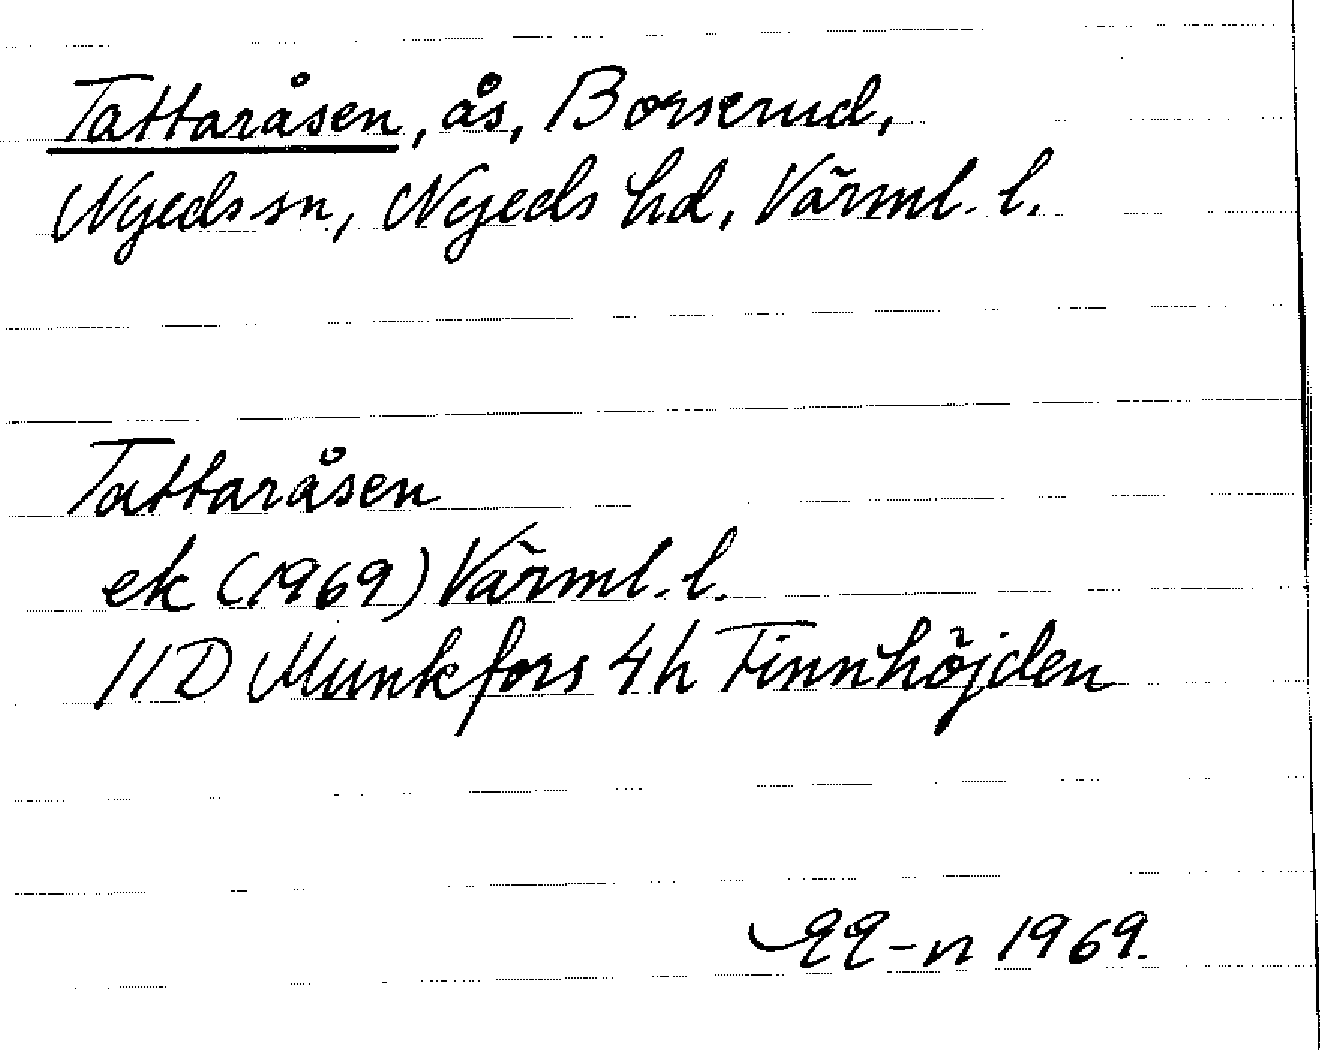 Tattaråsen, ås, Borserud,
Nyeds sn, Nyeds hd, Värml. l.
Tattaråsen
ek (1969) Värml. l.
11D Munkfors 4h Finnhöjden
1969.